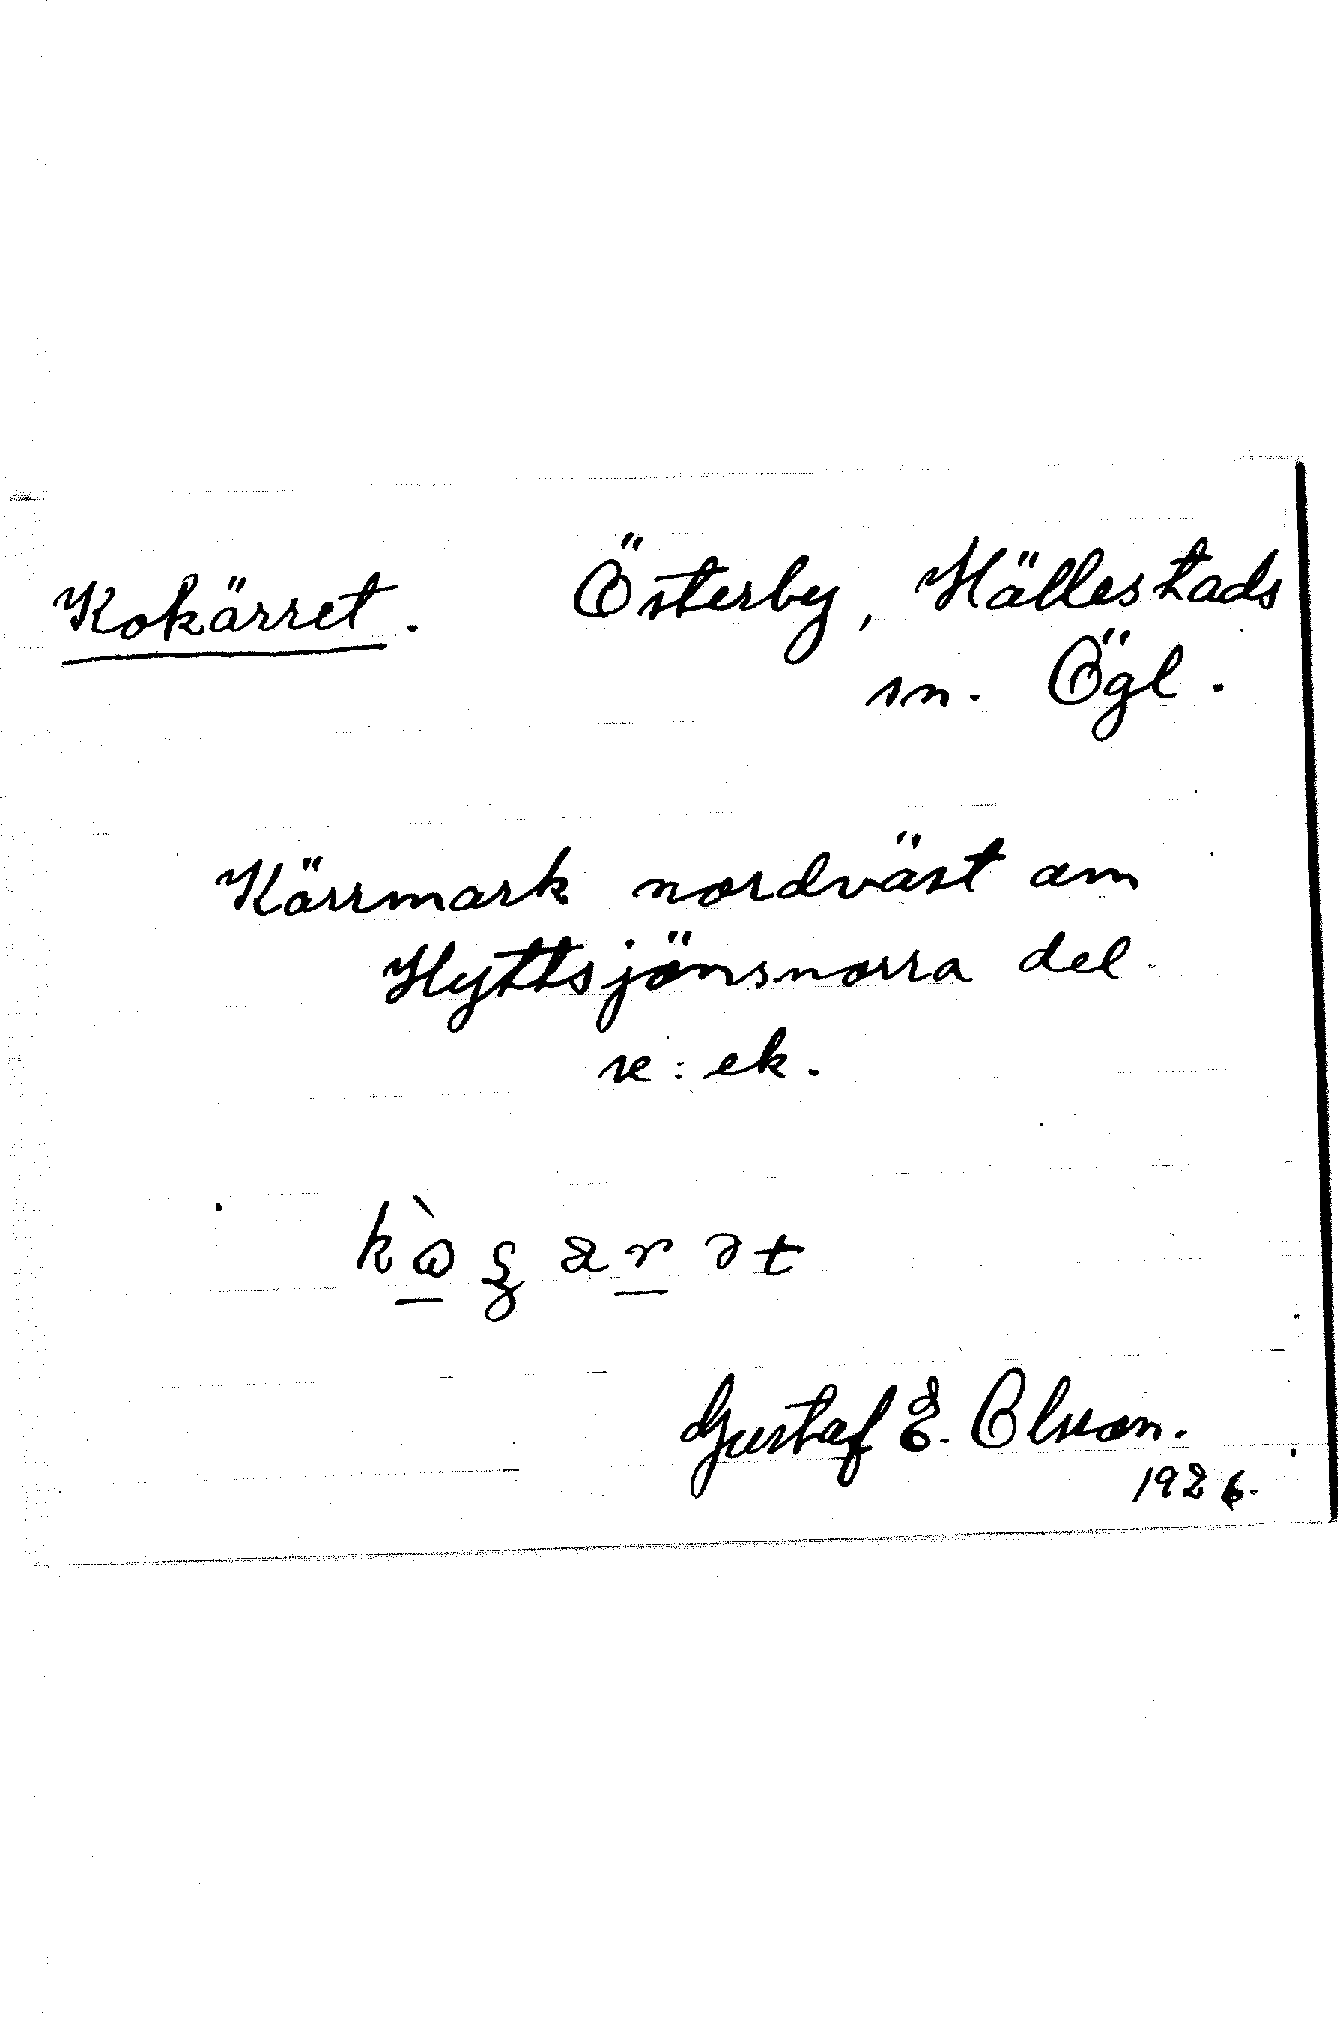 Kokärret. Österby, Hällestads
sn. Ögl.
Kärrmark nordväst om
Hyttsjönsnorra del
se: ek.
Gustaf E. Olsson.
1926.